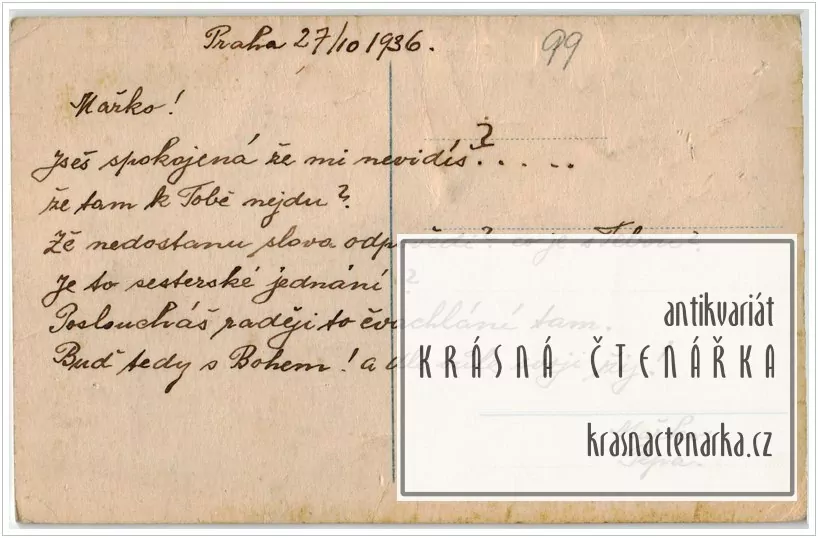 Praha 27/10 1936.
99
Mařko!
Jseš spokojená že mi nevidíš? . . . . .
že tam k Tobě nejdu?
Zě nedostanu slova odpovědě? co je s Tebou?
Je to sesterské jednání?
Posloucháš raději to čvachlání tam.
Buď tedy s Bohem! a
antikvariát
KRÁSNÁ ČTENÁŘKA
krasnactenarka.cz
Pepa.